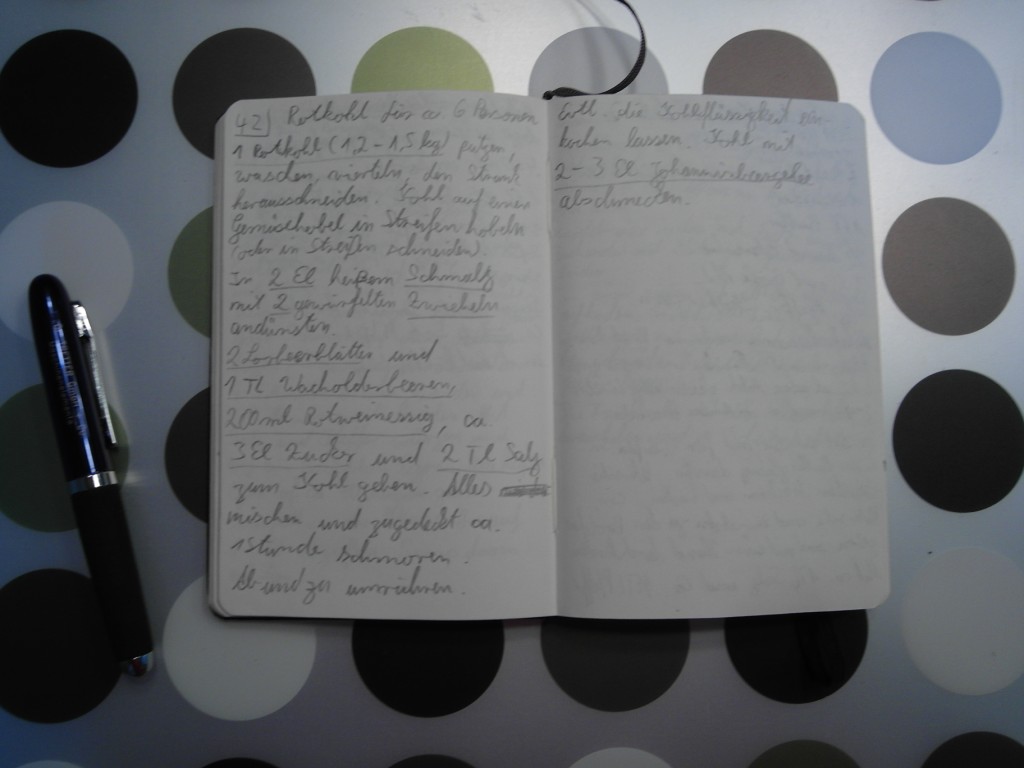 42) Rotkohl für ca 6 Personen
1 Rotkohl (1,2 - 1,5 kg) putzen,
waschen, vierteln, den Strunk
herausschneiden. Kohl auf einem
Gemüsehobel in Streifen hobeln
(oder in Streifen schneiden).
In 2 El heißem Schmalz
mit 2 gewürfelten Zwiebeln
andünsten.
2 Lorbeerblätter und
1 TL Wacholderbeeren,
200ml Rotweinessig, ca.
3 El Zucker und 2 TL Salz
zum Kohl geben. Alles
mischen und zugedeckt ca.
1 Stunde schmoren.
Ab und zu umrühren.
Evtl. die Kohlflüssigkeit ein-
kochen lassen. Kohl mit
2 - 3 El Johannisbeergelee
abschmecken.